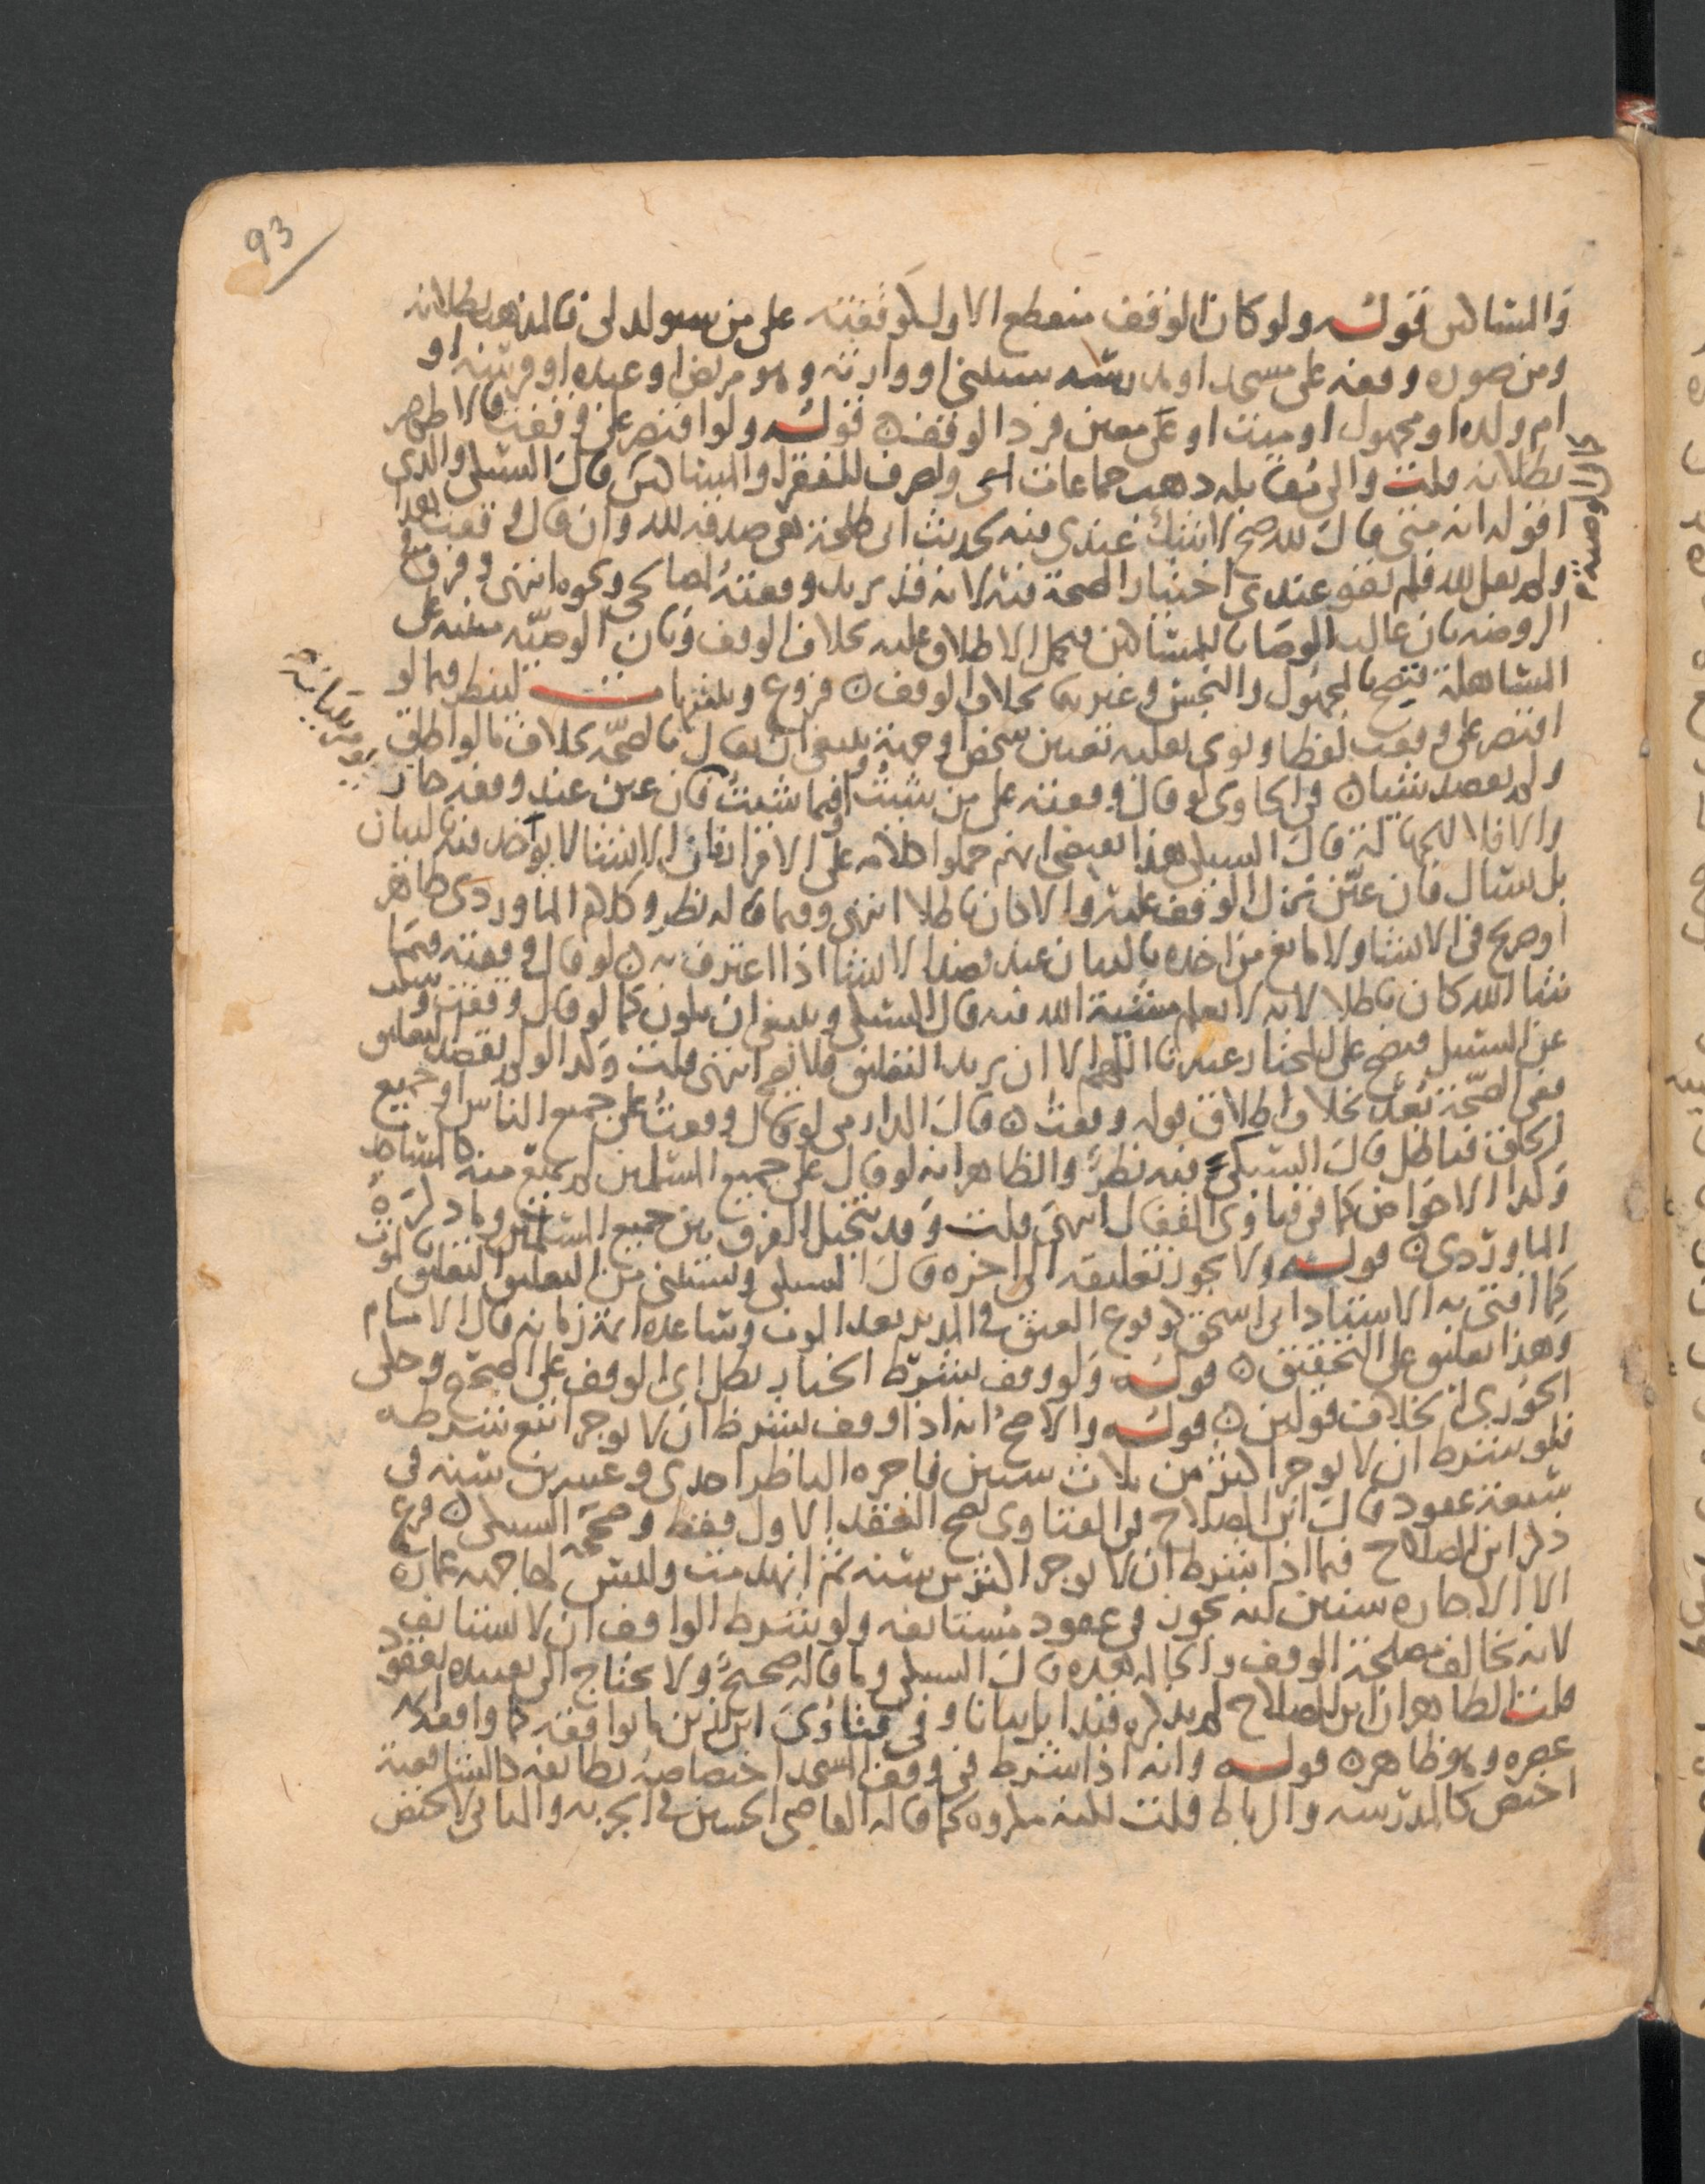 93
والمساكين قوله ولو كان الوقف منقطع الاول كوقفته على من سيولد لي فالمذهب بطلانه
ومن صوره وقفه على مسجد او مدرسة سيبنى او وارثه وهو مريض او عبده او مرتد او
ام ولده او مجهول او ميت او على معين فرد الوقف ن قوله ولو اقتصر على وقفت فالاظهر
بطلانه قلت والى مقابله ذهب جماعات اي ويصرف للفقراء والمساكين قال السبكي والذي
كالوصية
اقوله انه متى قال لله صح لا شك عندي فيه لحديث ابي طلحة هي صدقة لله وان قال وقفت هذا
ولم يقل لله فلم يقو عندي اختيار الصحة فيه لانه قد يريد وقفته لصالحي ونحوه انتهى وفرق في
الروضة بان غالب الوصايا للمساكين فحمل الاطلاق عليه بخلاف الوقف وبان الوصية مبنية على
المساهلة فتصح بالمجهول والنجس وغيرهما بخلاف الوقف ن فروع وبقيتها لينظر فيما لو
اقتصر على وقفت لفظا ونوى بقلبه تعيين شخص او جهة فينبغي ان يقال بالصحة بخلاف ما لو اطلق
ولم يقصد شيئا ن في الحاوي لو قال وقفته على من شئت او فيما شئت فان عين عند وقفه جاز
والا فلا للجهالة قال السبكي هذا يقتضي انهم حملوا كلامه على الاقرار فان الانشا لا يواخذ فيه بالبيان
بل يسال فان عين نزل الوقف عليه والا كان باطلا انتهى وفيما قاله نظر وكلام الماوردي ظاهر
او صريح في الانشا ولا مانع من اخذه بالبيان عند قصد الانشا اذا اعترف به ن لو قال وقفته فيما
شا الله كان باطلا لانه لا يعلم مشية الله فيه قال السبكي وينبغي ان يكون كما لو قال وقفت وسكت
عن السبل فيصح على المختار عندنا اللهم الا ان يريد التعليق فلا يصح انتهى قلت وكذا لو لم يقصد التعليق
ففي الصحة بعد بخلاف اطلاق قوله وقفت ن قال الدارمي لو قال وقفت على جميع الناس او جميع
الخلق فباطل قال السبكي فيه نظر والظاهر انه لو قال على جميع المسلمين لم يمتنع منه كالشاط
وكذا الاحواض كما في فتاوى القفال انتهى قلت وقد يتخيل الفرق بين جميع المسلمين وما ذكره
الماوردي ن قوله ولا يجوز تعليقه الى اخره قال السبكي ويستثنى من التعليق التعليق بالموت
كما افتى به الاستاد ابو اسحق لوقوع العتق في المدبر بعد الموت وساعده ائمة زمانه قال الامام
وهذا تعليق على التحقيق ن قوله ولو وقف بشرط الخيار بطل اي الوقف على الصحيح وحكى
الجوري الخلاف قولين ن قوله والاصح انه اذا وقف بشرط ان لا يوجر اتبع شرطه
فلو شرط ان لا يوجر اكثر من ثلاث سنين فاجره الناظر احدى وعشرين سنة في
سبعة عقود قال ابن الصلاح في الفتاوى يصح العقد الاول فقط وصححه السبكي ن فرع
ذكر ابن الصلاح فيما اذا شرط ان لا يوجر اكثر من سنة ثم انهدمت وليس لها جهة عمارة
الا الاجارة سنين انه يجوز في عقود مستانفة ولو شرط الواقف ان لا يستانف
لانه يخالف مصلحة الوقف والحالة هذه قال السبكي وما قاله صحيح ولا يحتاج الى تقييده بعقود
قلت الظاهر ان ابن الصلاح لم يذكره قيدا بل بيانا وفي فتاوى ابن رزين ما يوافقه كما وافقه ائمة
عصره وهو ظاهر ن قوله وانه اذا شرط في وقف المسجد اختصاصه بطائفة كالشافعية
اختص كالمدرسة والرباط قلت لكنه مكروه كما قاله القاضي الحسين في الجزية والثاني لا يختص